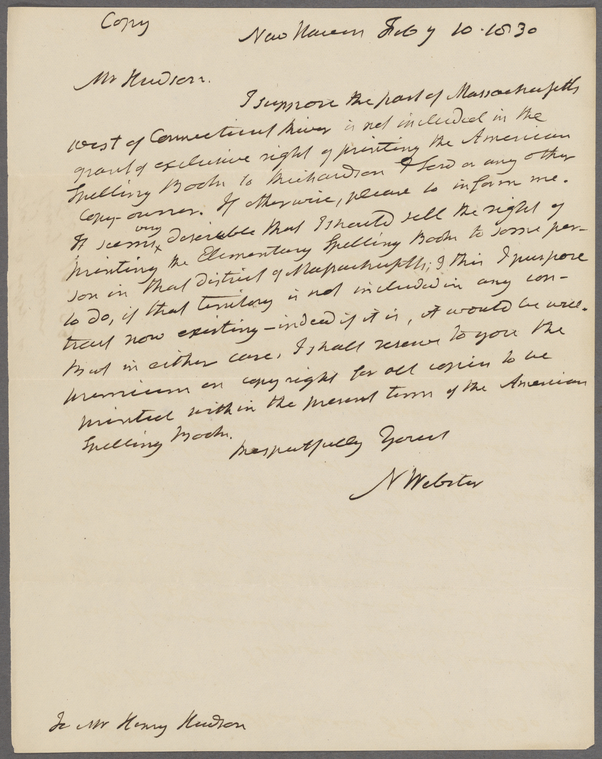 Copy
New Haven Feby 10. 1830
Mr Hudson.
I suppose the part of Massachusetts
west of Connecticut River is not included in the
grant of exclusive right of printing the American
Spelling Book to Richardson & Lord or any other
Copy-owner. If otherwise, please to inform me.
very
It seems desirable that I should sell the right of
printing the Elementary Spelling Book to some per-
son in that district of Massachusetts; & this I purpose
to do, if that territory is not included in any con-
tract now existing - indeed if it is, it would be well.
But in either case, I shall reserve to you the
premium on copy right for all copies to be
printed within the present term of the American
Spelling Book.
Respectfully Yours
N Webster
To Mr Henry Hudson